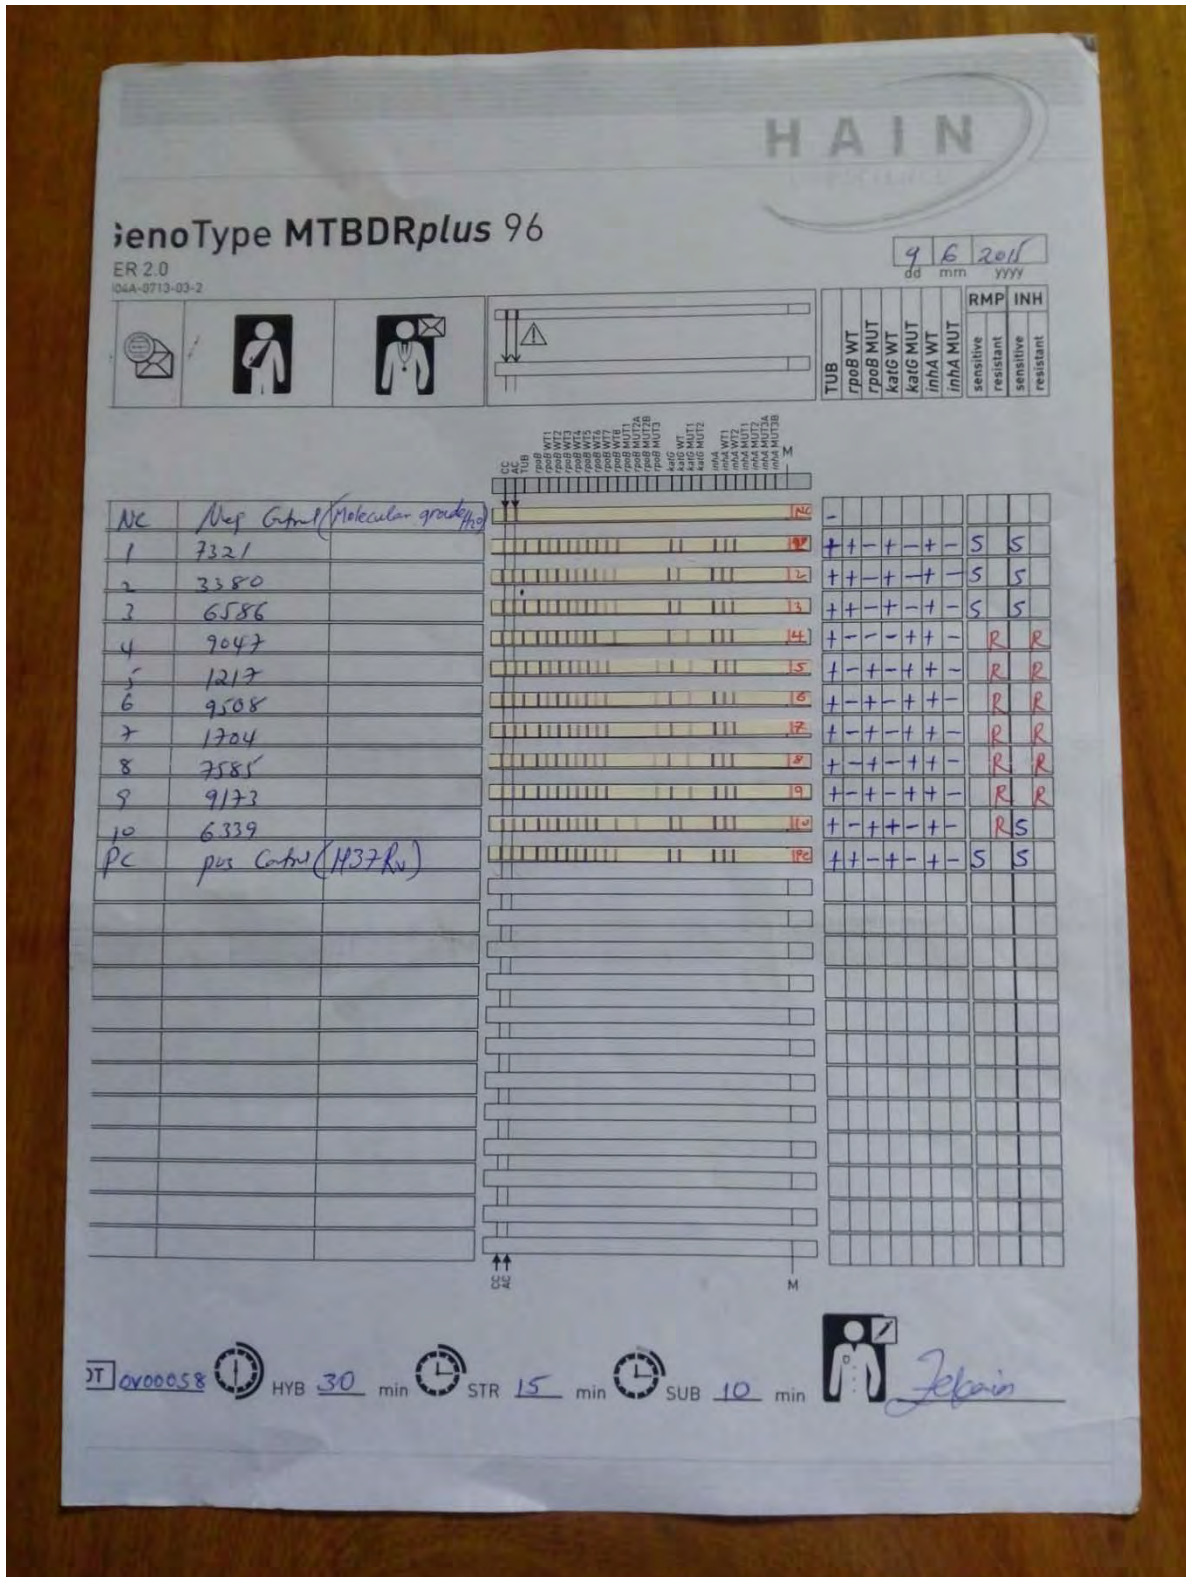 HAIN
LIFESCIENCE
GenoType MTBDRplus 96
ER 2.0
04A-0713-03-2
9 6 2015
dd mm yyyy
TUB
rpoB WT
rpoB MUT
katG WT
katG MUT
inhA WT
inhA MUT
RMP INH
sensitive
resistant
sensitive
resistant
CC
AC
TUB
rpoB
rpoB WT1
rpoB WT2
rpoB WT3
rpoB WT4
rpoB WT5
rpoB WT6
rpoB WT7
rpoB WT8
rpoB MUT1
rpoB MUT2A
rpoB MUT2B
rpoB MUT3
katG
katG WT
katG MUT1
katG MUT2
inhA
inhA WT1
inhA WT2
inhA MUT1
inhA MUT2
inhA MUT3A
inhA MUT3B
M
NC Neg Control (Molecular grade H2O) NC -
1 7321 1 + + - + - + - S S
2 3380 2 + + - + - + - S S
3 6586 3 + + - + - + - S S
4 9047 4 + - - - + + - R R
5 1217 5 + - + - + + - R R
6 9508 6 + - + - + + - R R
7 1704 7 + - + - + + - R R
8 7585 8 + - + - + + - R R
9 9173 9 + - + - + + - R R
10 6339 10 + - + + - + - R S
PC pos Control (H37Rv) PC + + - + - + - S S
CC
AC
M
OT 0V00058 HYB 30 min STR 15 min SUB 10 min